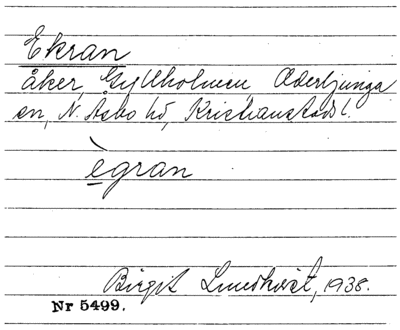 Ekran
åker, Gyllholmen, Oderljunga
sn, N. Åsbo hd, Kristianstads l.
ègran
Birgit Lundkvist, 1938.
Nr 5499.